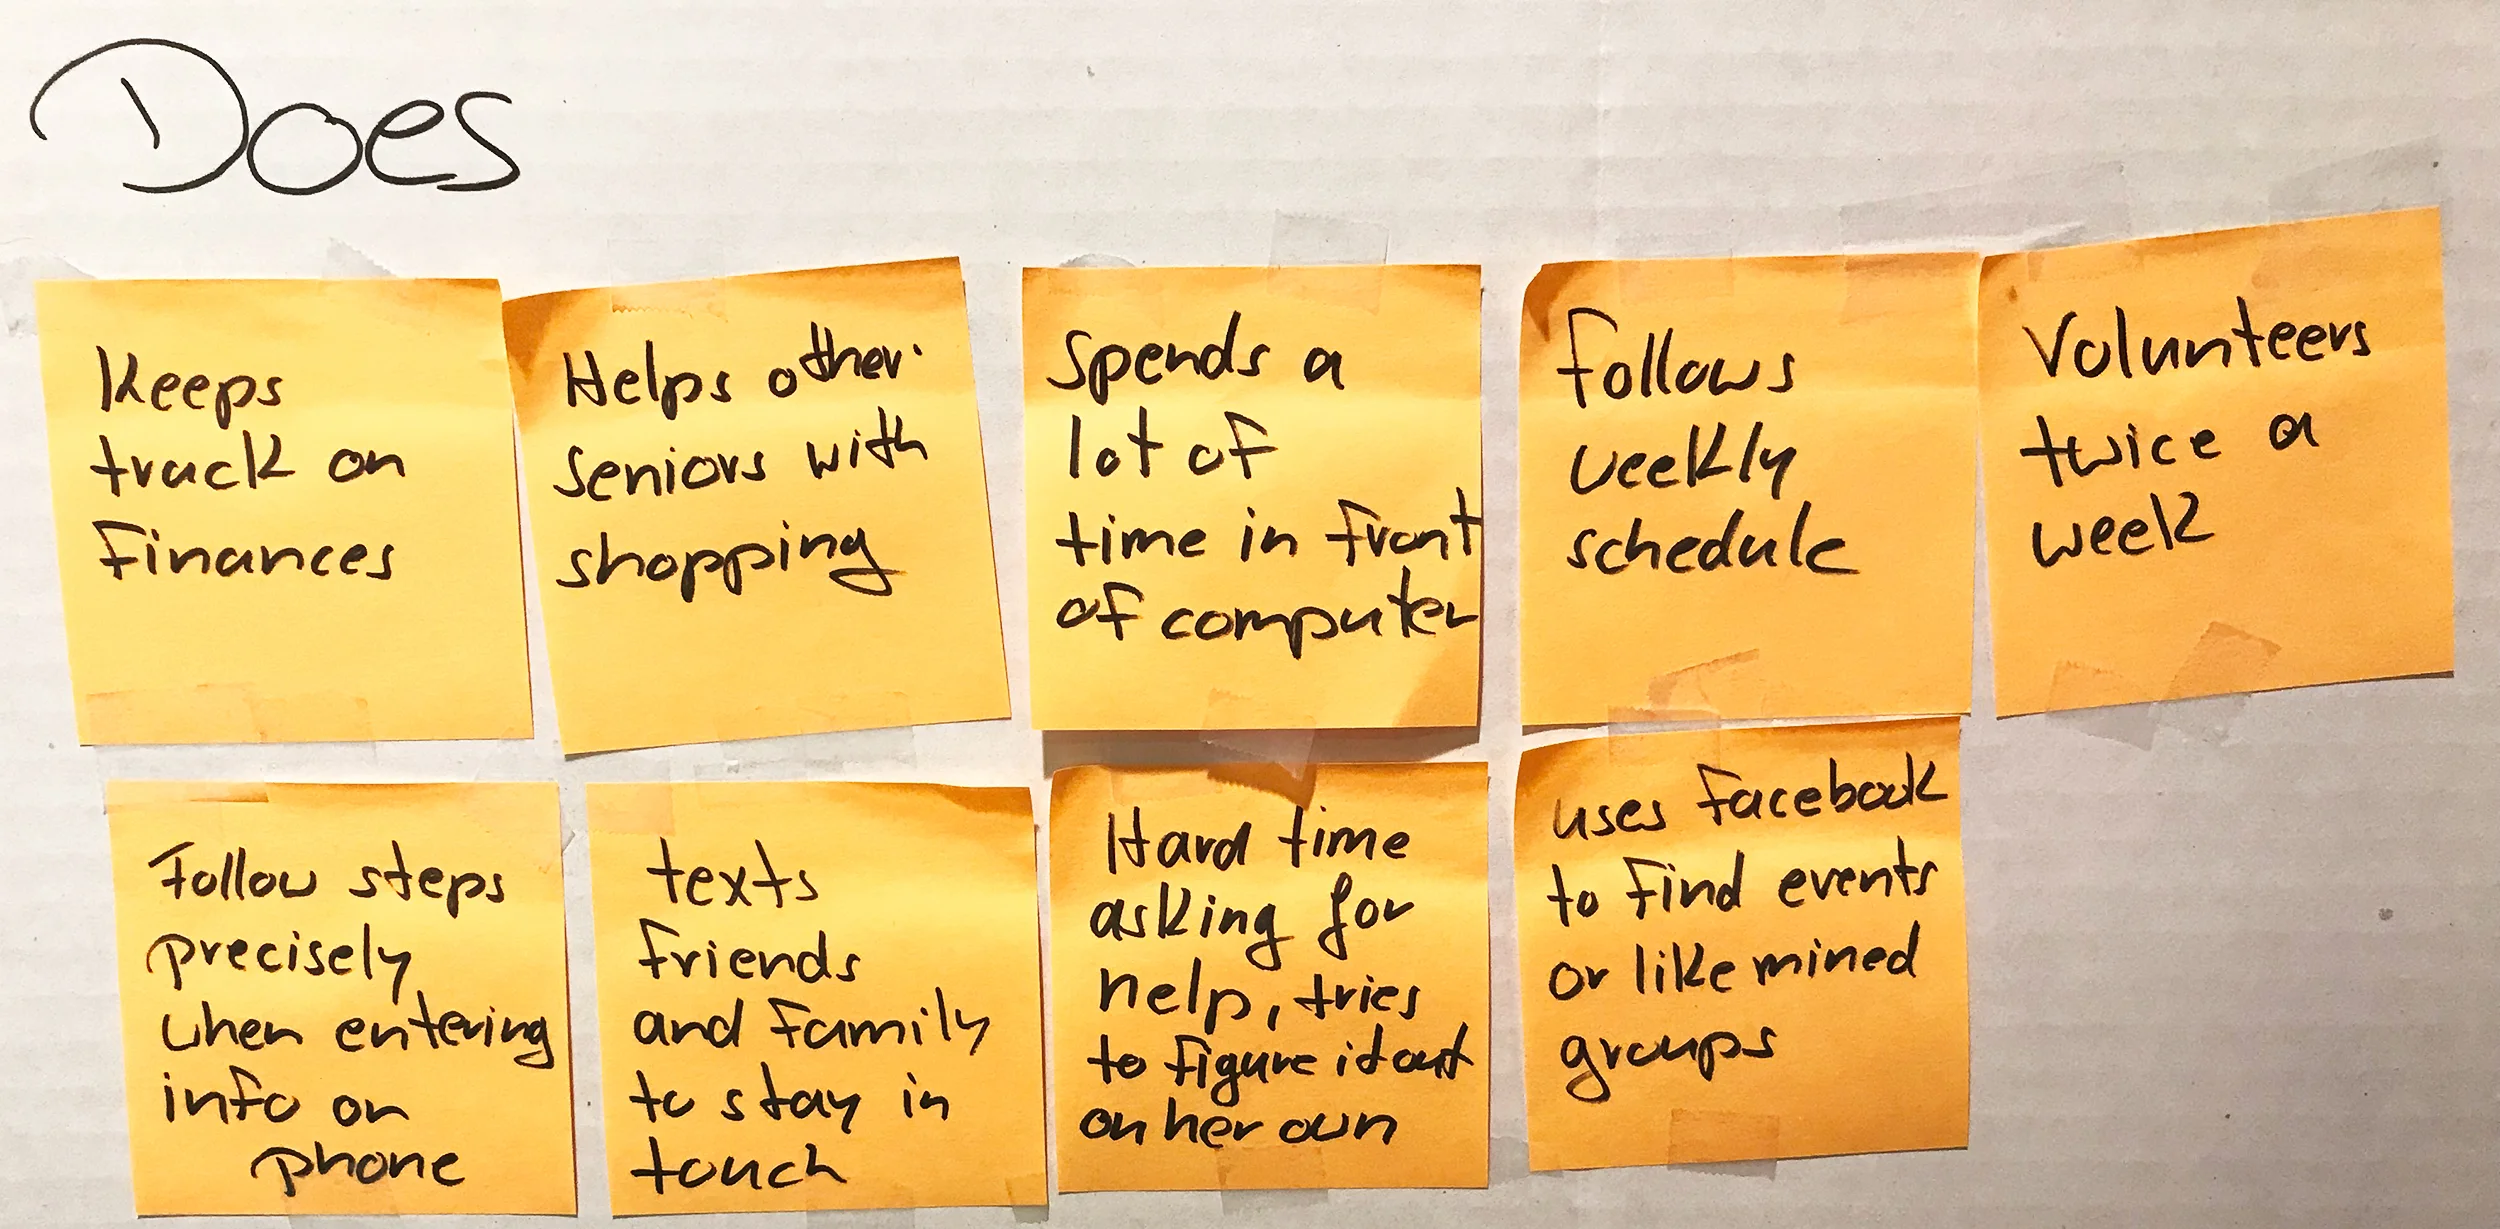 Does
Keeps
track on
Finances
Helps other
seniors with
shopping
Spends a
lot of
time in front
of computer
Follows
weekly
schedule
Volunteers
twice a
week
Follow steps
precisely
when entering
info on
phone
texts
friends
and family
to stay in
touch
Hard time
asking for
help, tries
to figure it out
on her own
uses facebook
to find events
or like mined
groups